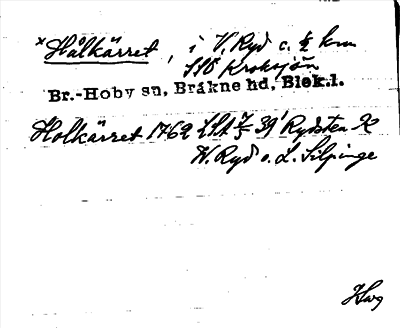 × Hålkärret, i V. Ryd c. ½ km
SSO Kroksjön
Br.-Hoby sn, Bräkne hd, Blek.l.
Holkärret 1762 LSA 7-39' Rydsten
V. Ryd o. L. Silpinge